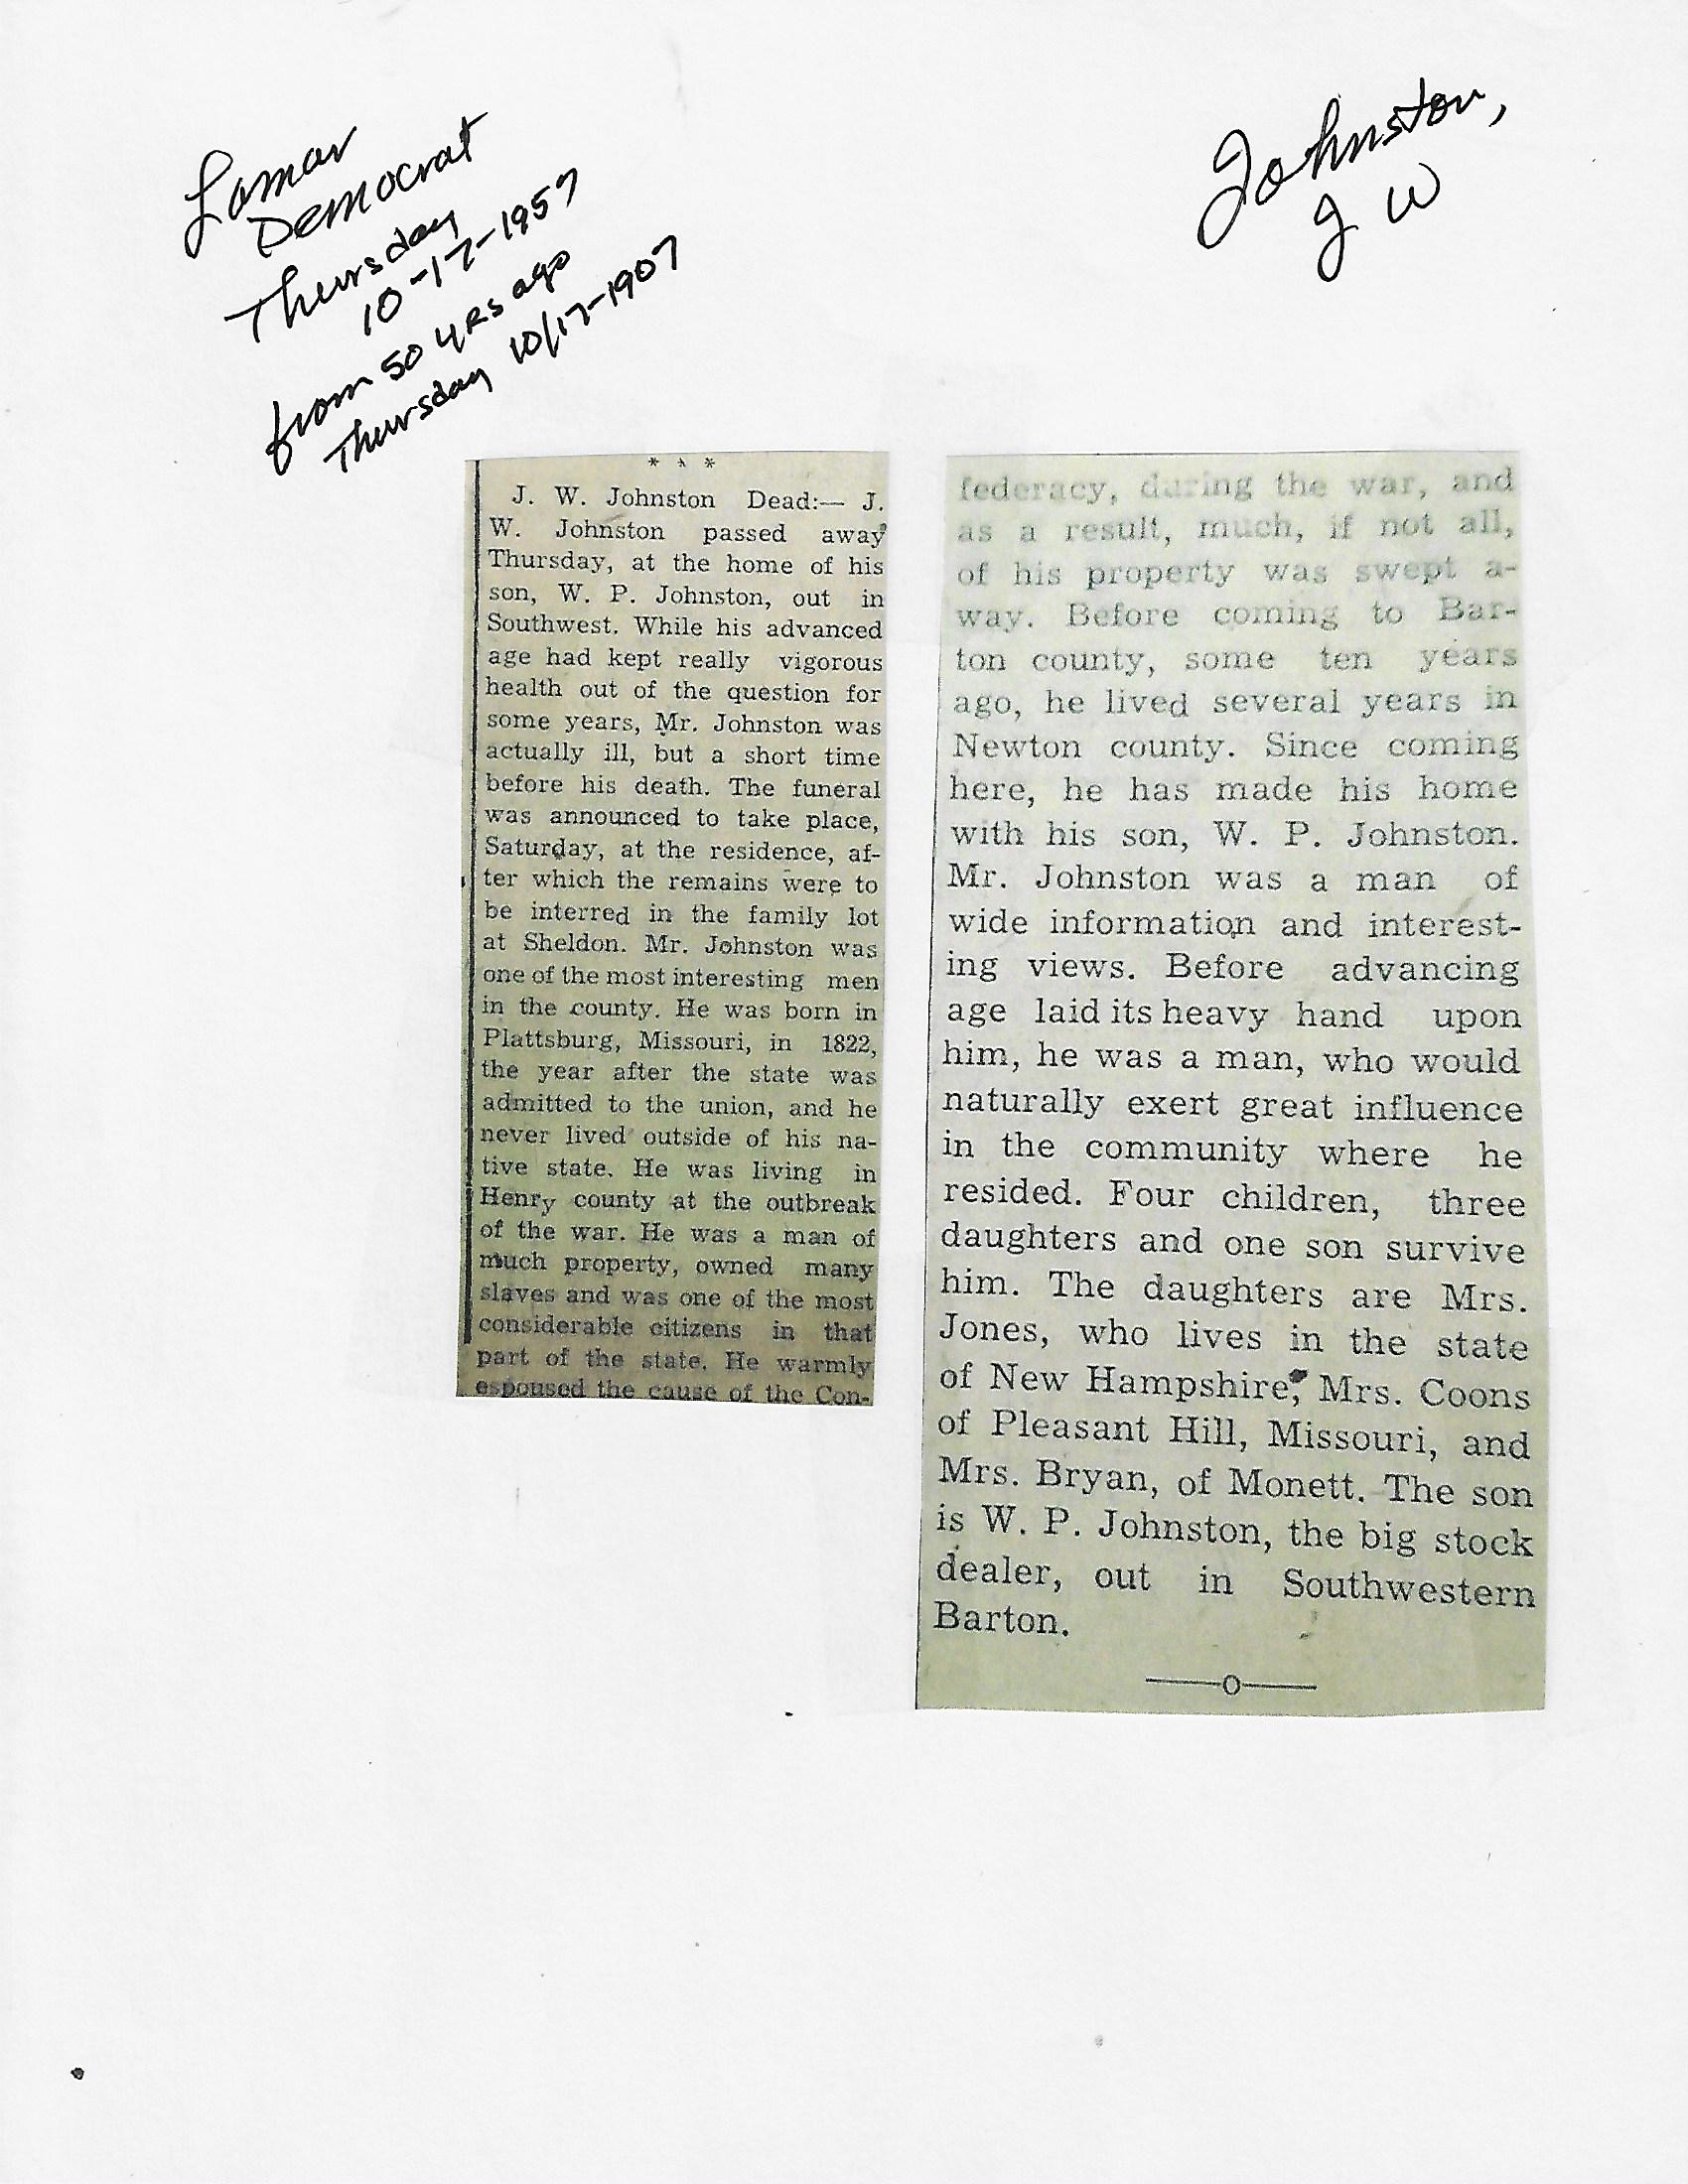 Lamar
Democrat
Thursday
10-17-1957
from 50 yrs ago
Thursday 10/17-1907
Johnston,
J W
* * *
J. W. Johnston Dead:— J.
W. Johnston passed away
Thursday, at the home of his
son, W. P. Johnston, out in
Southwest. While his advanced
age had kept really vigorous
health out of the question for
some years, Mr. Johnston was
actually ill, but a short time
before his death. The funeral
was announced to take place,
Saturday, at the residence, af-
ter which the remains were to
be interred in the family lot
at Sheldon. Mr. Johnston was
one of the most interesting men
in the county. He was born in
Plattsburg, Missouri, in 1822,
the year after the state was
admitted to the union, and he
never lived outside of his na-
tive state. He was living in
Henry county at the outbreak
of the war. He was a man of
much property, owned many
slaves and was one of the most
considerable citizens in that
part of the state. He warmly
espoused the cause of the Con-
federacy, during the war, and
as a result, much, if not all,
of his property was swept a-
way. Before coming to Bar-
ton county, some ten years
ago, he lived several years in
Newton county. Since coming
here, he has made his home
with his son, W. P. Johnston.
Mr. Johnston was a man of
wide information and interest-
ing views. Before advancing
age laid its heavy hand upon
him, he was a man, who would
naturally exert great influence
in the community where he
resided. Four children, three
daughters and one son survive
him. The daughters are Mrs.
Jones, who lives in the state
of New Hampshire, Mrs. Coons
of Pleasant Hill, Missouri, and
Mrs. Bryan, of Monett. The son
is W. P. Johnston, the big stock
dealer, out in Southwestern
Barton.
——o——